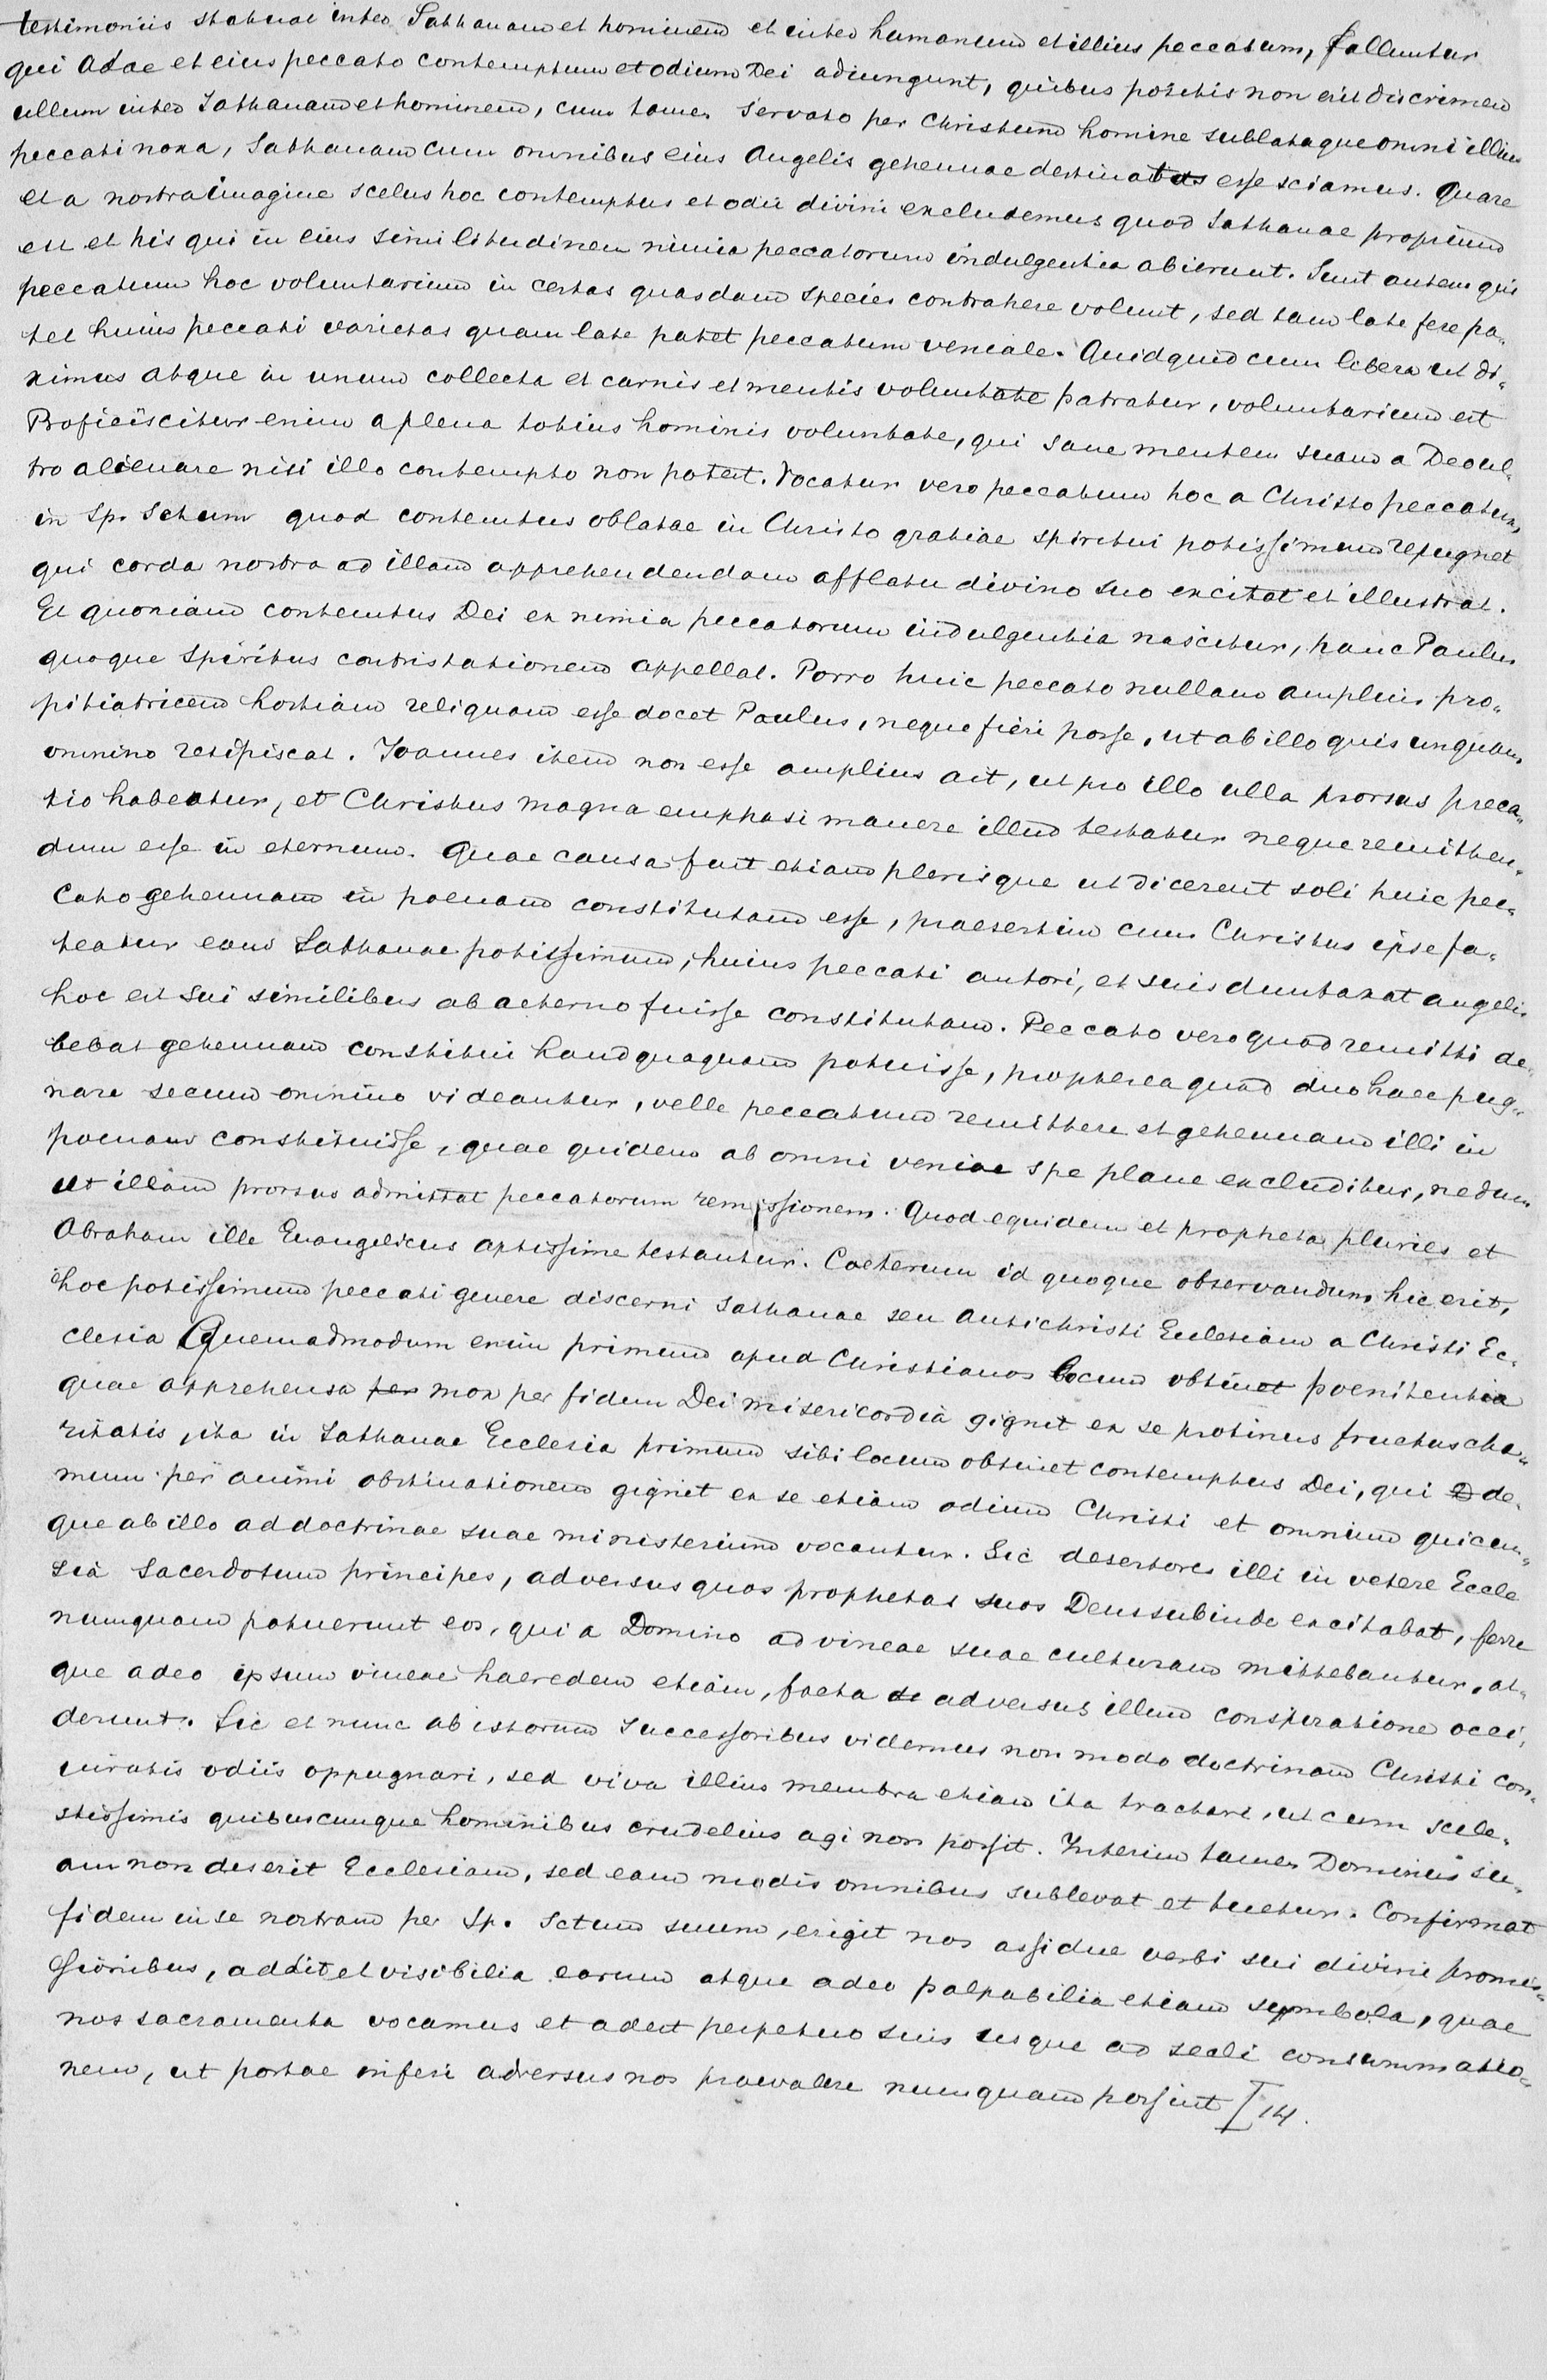 testimoniis statuat inter Sathanam et hominem et inter humanum et illius peccatum, falluntur
qui Adae et eius peccato contemptum et odium Dei adiungunt, quibus positis non erit discrimen
ullum inter Sathanam et hominem, cum tamen servato per Christum homine sublataque omni illius
peccati noxa, Sathanam cum omnibus eius Angelis gehennae destinatus esse sciamus. Quare
et a nostra imagine scelus hoc contemptus et odii divini excludemus quod Sathanae proprium
est et his qui in eius similitudinem nimia peccatorum indulgentia abierunt. Sunt autem qui
peccatum hoc voluntarium in certas quasdam species contrahere volunt, sed tam late fere pa„
tet huius peccati varietas quam late patet peccatum veniale. Quidquid cum libera ut di„
ximus atque in unum collecta et carnis et mentis voluntate patratur, voluntarium est
Proficiscitur enim a plena totius hominis voluntate, qui sane mentem suam a Deo ul„
tro alienare nisi illo contempto non potest. Vocatur vero peccatum hoc a Christo peccatum
in Sp. Sctum quod contemtus oblatae in Christo gratiae spiritui potissimum repugnet
qui corda nostra ad illam apprehendendam afflatu divino suo excitat et illustrat.
Et quoniam contemtus Dei ex nimia peccatorum indulgentia nascitur, hanc Paulus
quoque Spiritus contristationem appellat. Porro huic peccato nullam amplius pro„
pitiatricem hostiam reliquam esse docet Paulus, neque fieri posse, ut ab illo quis unquam
omnino resipiscat. Joannes item non esse amplius ait, ut pro illo ulla prorsus preca„
tio habeatur, et Christus magna emphasi manere illud testatur neque remitten„
dum esse in eternum. Quae causa fuit etiam plerisque ut dicerent soli huic pec„
cato gehennam in poenam constitutam esse, praesertim cum Christus ipse fa„
teatur eam Sathanae potissimum, huius peccati autori, et suis duntaxat angelis
hoc est sui similibus ab aeterno fuisse constitutam. Peccato vero quod remitti de„
bebat gehennam constitui haudquaquam potuisse, propterea quod duo haec pug„
nare secum omnino videantur, velle peccatum remittere et gehennam illi in
poenam constituisse, quae quidem ab omni veniae spe plane excluditur, nedum
ut illam prorsus admittat peccatorum remissionem. Quod equidem et propheta pluries et
Abraham ille Evangelicus aptissime testantur. Caeterum id quoque observandum hic erit,
hoc potissimum peccati genere discerni Sathanae seu Antichristi Ecclesiam a Christi Ec„
clesia Quemadmodum enim primum apud Christianos locum obtinet poenitentia
quae apprehensa per mox per fidem Dei misericordia gignit ex se protinus fructus cha„
ritatis, ita in Sathanae Ecclesia primum sibi locum obtinet contemptus Dei, qui D de„
mum per animi obstinationem gignit ex se etiam odium Christi et omnium quicun„
que ab illo ad doctrinae suae ministerium vocantur. Sic desertores illi in vetere Eccle
sia Sacerdotum principes, adversus quos prophetas suos Deus subinde excitabat, ferre
numquam potuerunt eos, qui a Domino ad vineae suae culturam mittebantur, at„
que adeo ipsum vineae haeredem etiam, facta de adversus illum conspiratione occi„
derunt. Sic et nunc ab istorum Successoribus videmus non modo doctrinam Christi con„
iuratis odiis oppugnari, sed viva illius membra etiam ita tractari, ut cum scele„
stissimis quibuscunque hominibus crudelius agi non possit. Interim tamen Dominus su„
am non deserit Ecclesiam, sed eam modis omnibus sublevat et tuetur. Confirmat
fidem in se nostram per Sp. Sctum suum, erigit nos assidue verbi sui divini promis„
sionibus, addit et visibilia earum atque adeo palpabilia etiam symbola, quae
nos sacramenta vocamus et adest perpetuo suis usque ad secli consummatio„
nem, ut portae inferi adversus nos praevalere nunquam possint [14.